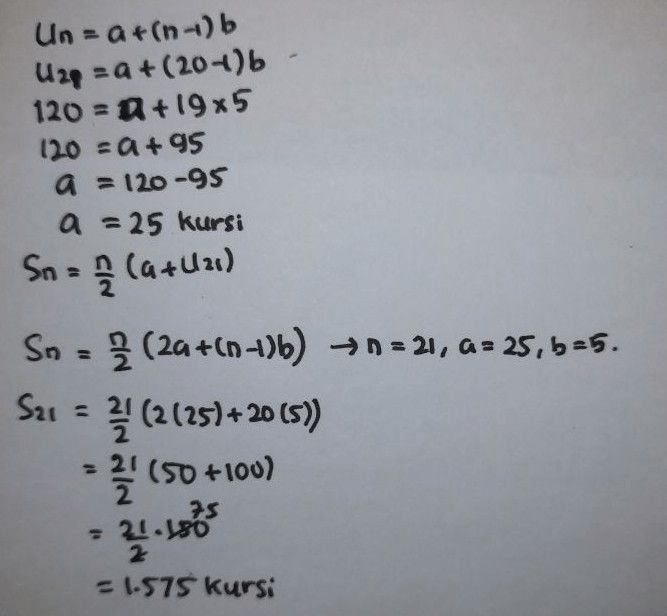 Un = a + (n-1)b
U20 = a + (20-1)b
120 = a + 19 x 5
120 = a + 95
a = 120 - 95
a = 25 kursi
Sn = n/2 (a + U21)
Sn = n/2 (2a + (n-1)b) → n = 21, a = 25, b = 5.
S21 = 21/2 (2(25) + 20(5))
= 21/2 (50 + 100)
= 21/2 . 150 75
= 1.575 kursi